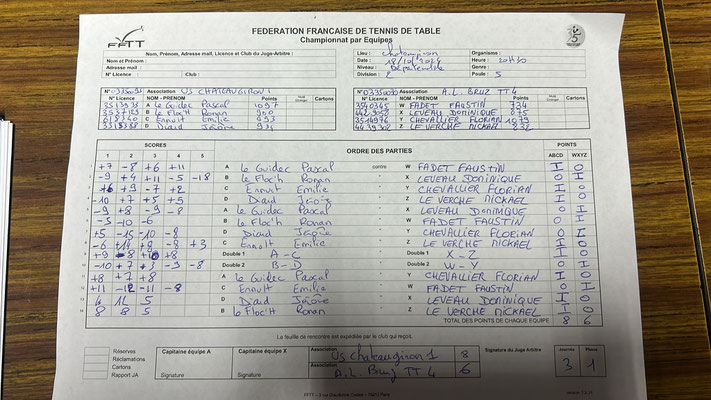 FFTT
FEDERATION FRANCAISE DE TENNIS DE TABLE
Championnat par Equipes
Nom, Prénom, Adresse mail, Licence et Club du Juge-Arbitre :
Nom et Prénom :
Adresse mail :
N° Licence : Club :
Lieu : Chateaugiron Organisme :
Date : 18/10/2024 Heure : 20H30
Niveau : Départementale
Division : 2 Poule : 5
Association US CHATEAUGIRON 1
N° Licence NOM - PRENOM Points Cartons
A Le Guidec Pascal
B Le Floc'h Ronan
C Ennuit Emilie
D Diard Jérôme
Association A.L. BRUZ TT 4
N° Licence NOM - PRENOM Points Cartons
W FADET FAUSTIN 734
X LEVEAU DOMINIQUE 875
Y CHEVALLIER FLORIAN 1079
Z LE VERCHE MICKAEL 832
SCORES ORDRE DES PARTIES POINTS
1 2 3 4 5 ABCD WXYZ
+7 -8 +6 +11 A Le Guidec Pascal contre W FADET FAUSTIN 1 0
-9 +7 +11 -5 -18 B Le Floc'h Ronan X LEVEAU DOMINIQUE 0 1
+6 +9 -7 +2 C Ennuit Emilie Y CHEVALLIER FLORIAN 1 0
-10 +7 +5 +5 D Diard Jérôme Z LE VERCHE MICKAEL 1 0
-9 +8 -9 -8 A Le Guidec Pascal X LEVEAU DOMINIQUE 0 1
-5 -10 -6 B Le Floc'h Ronan W FADET FAUSTIN 0 1
+5 -15 -10 -8 D Diard Jérôme Y CHEVALLIER FLORIAN 0 1
-6 +14 +9 -8 +3 C Ennuit Emilie Z LE VERCHE MICKAEL 1 0
+9 -8 +10 +8 Double 1 A-C Double 1 X-Z 1 0
-10 +7 +3 -9 -8 Double 2 B-D Double 2 W-Y 0 1
+8 +7 +8 A Le Guidec Pascal Y CHEVALLIER FLORIAN 1 0
+11 -12 -11 -8 C Ennuit Emilie W FADET FAUSTIN 0 1
6 12 5 D Diard Jérôme X LEVEAU DOMINIQUE 1 0
8 8 5 B Le Floc'H Ronan Z LE VERCHE MICKAEL 1 0
TOTAL DES POINTS DE CHAQUE EQUIPE 8 6
La feuille de rencontre est expédiée par le club qui reçoit.
Réserves
Réclamations
Cartons
Rapport JA
Capitaine équipe A
Signature
Capitaine équipe X
Signature
Association US chateaugiron 1 8
Association A.L. Bruz TT 4 6
Signature du Juge-Arbitre
Journée Phase
3 1